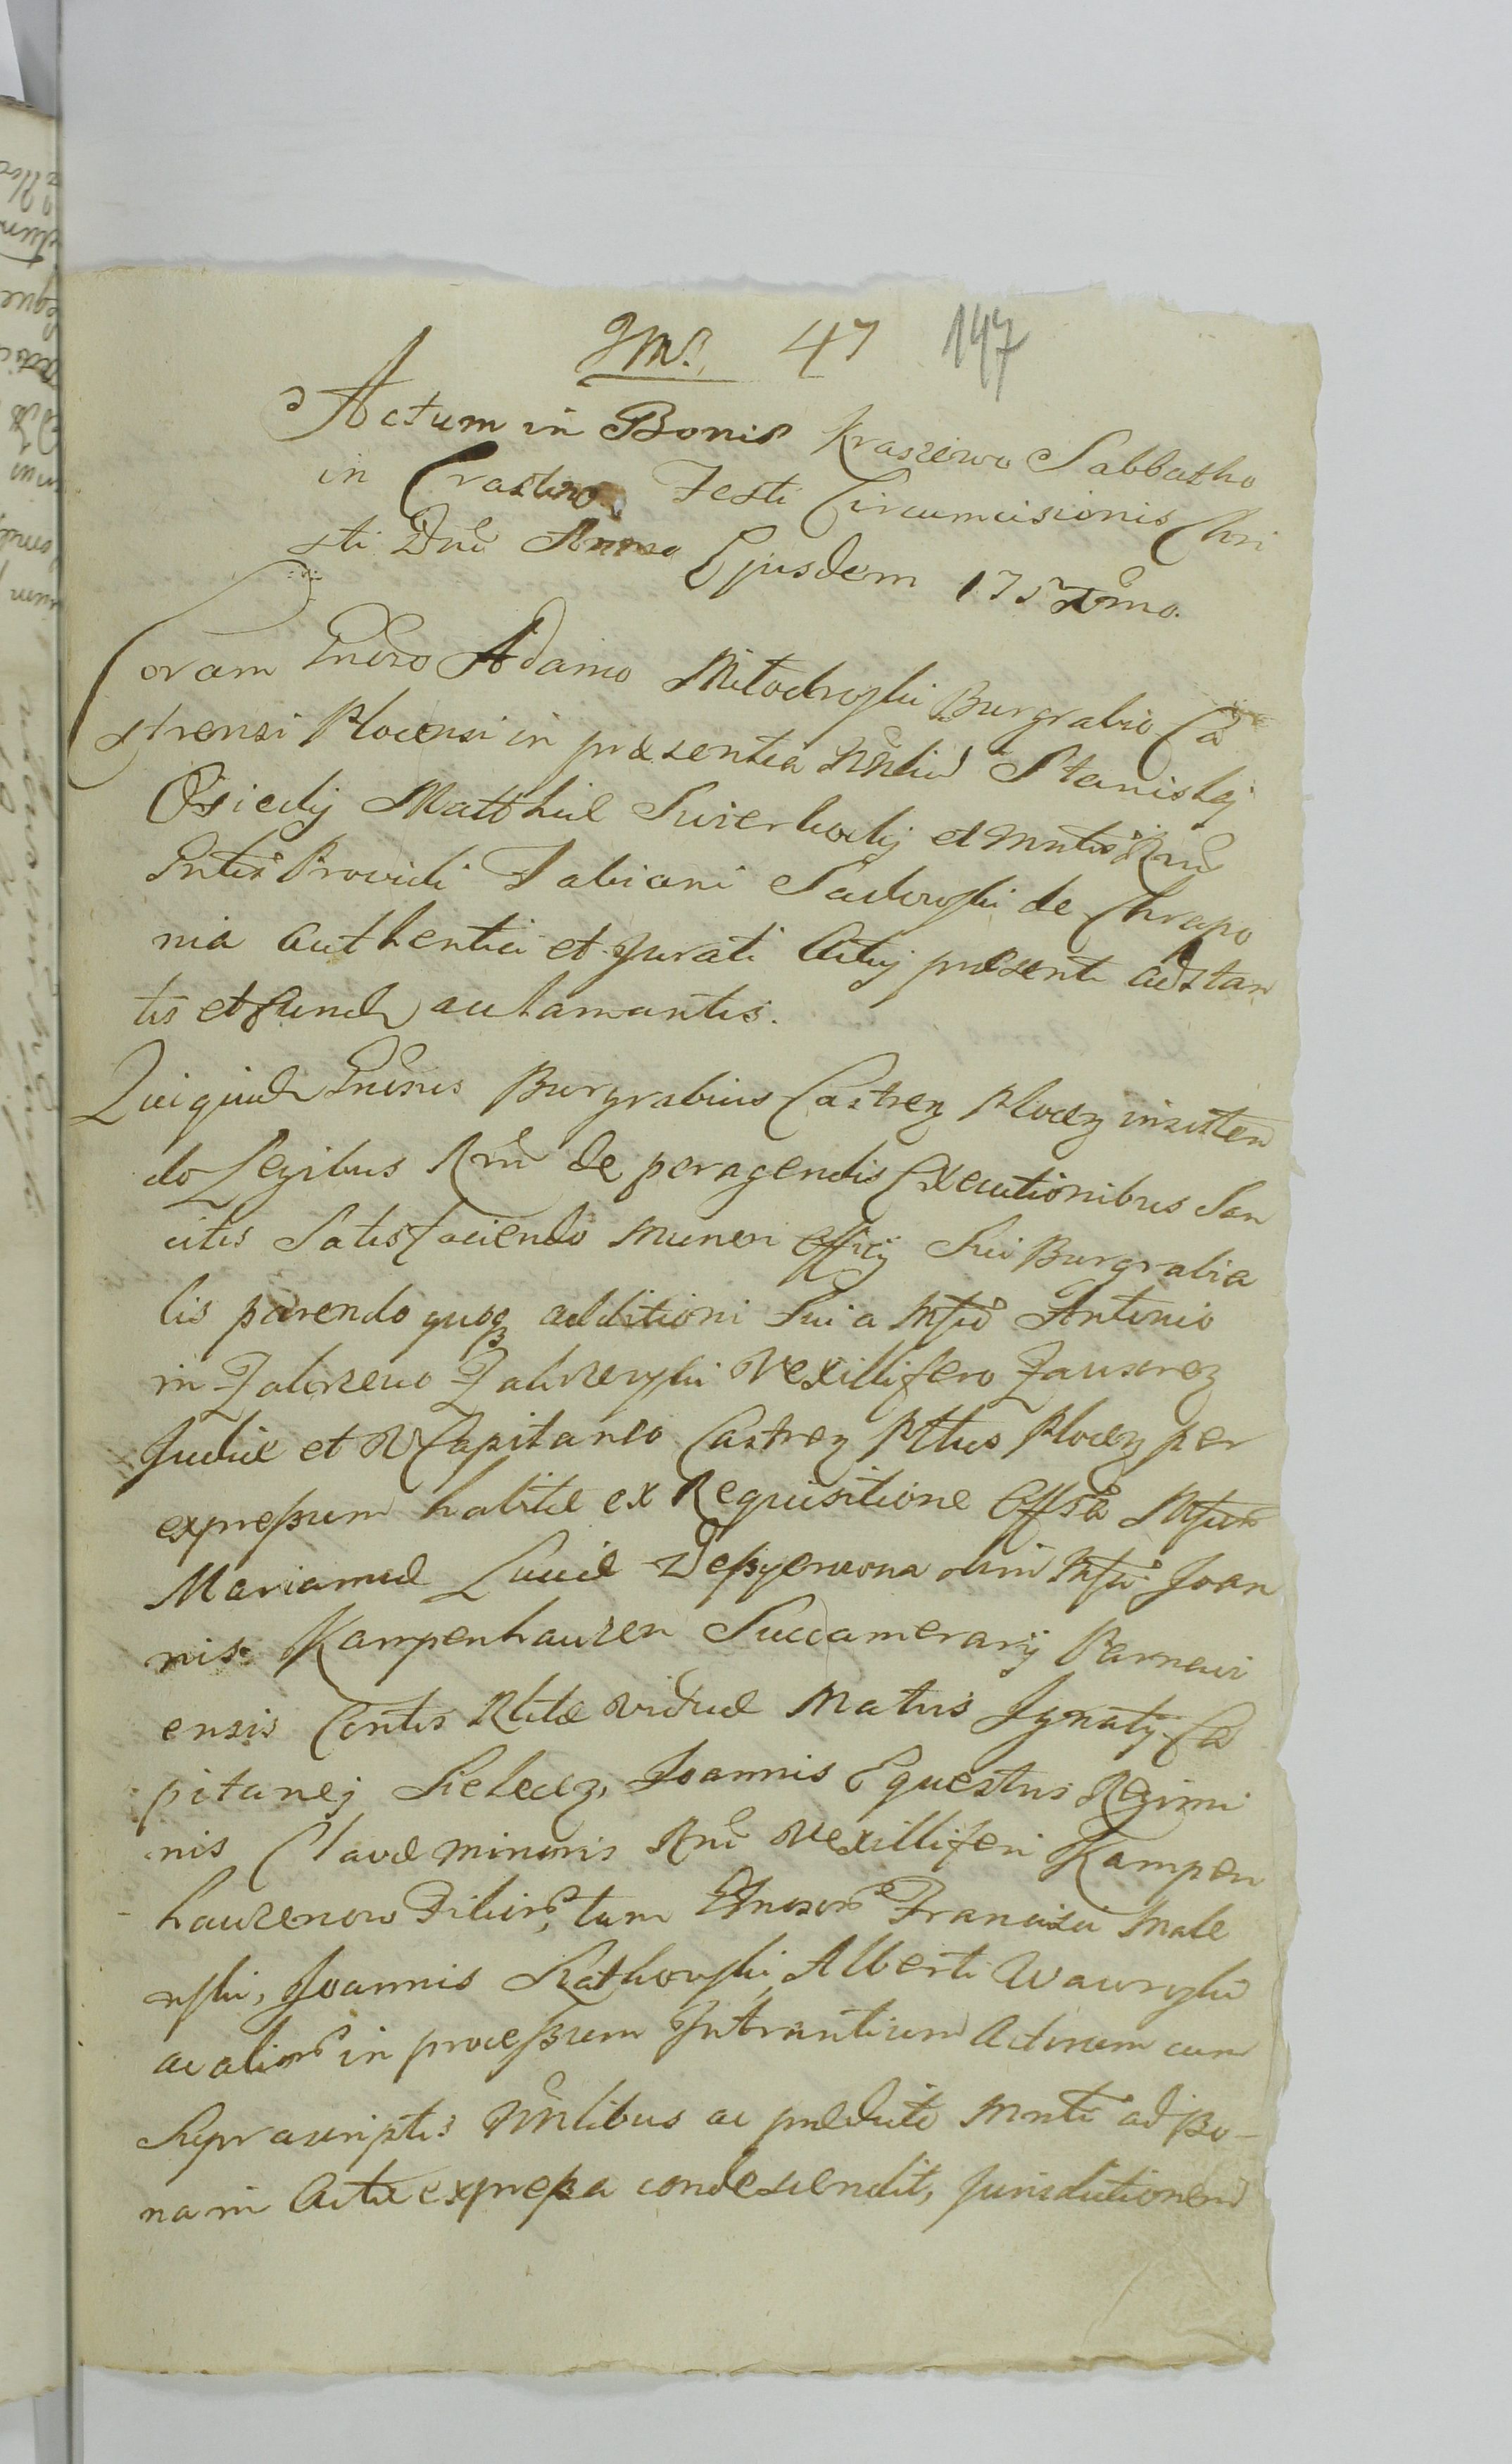 47 147
Actum in Bonis Kraszewo Sabbatho
in Crastino Festi Circumcisionis Chri
sti Dni Anno Ejusdem 175
Coram Gnroso Adamo Mitodroski Burgrabio Ca
strensi Plocensi in præsentia Nblium Stanislaj
Osiecky Matthiæ Swierkocky et Mntis Rni
Gntis Providi Fabiani Sadowski de Chrapo
nia authentici et Jurati Actuj præsenti adstan
tis et acclamantis.
Qui quid Gnrsus Burgrabius Castren Plocen insisten
do Legibus Rni de peragendis Executionibus San
citis Satisfaciendo Muneri Officij Sui Burgrabia
lis parendo quoq additioni Sui a Mfco Antonio
in Zaborzewo Zaborzewski Vexillifero Zauscren
Judice et VCapitaneo Castren Pttus Plocen per
expressum habitæ ex Requisitione Offsa Mfcæ
Mariannæ Luciæ olim Mfci Joan
nis Kampenhauzen Succamerarij Parnavi
ensis Contis Rlitæ viduæ Matris Ignatij Ca
pitanej Sielecen, Joannis Equestris Regimi
nis Clavæ minoris Rni Vexilliferi Kampen
hauzenow Filior, tum Gnsor Francisci Male
wski, Joannis Rathowski, Alberti Wawrzyski
ac alior in processum Intrantium Actorum cum
Suprascriptis Nblibus ac prædicto Mnti ad Bo-
na in Actu expressa condescendit, Jurisdictionem